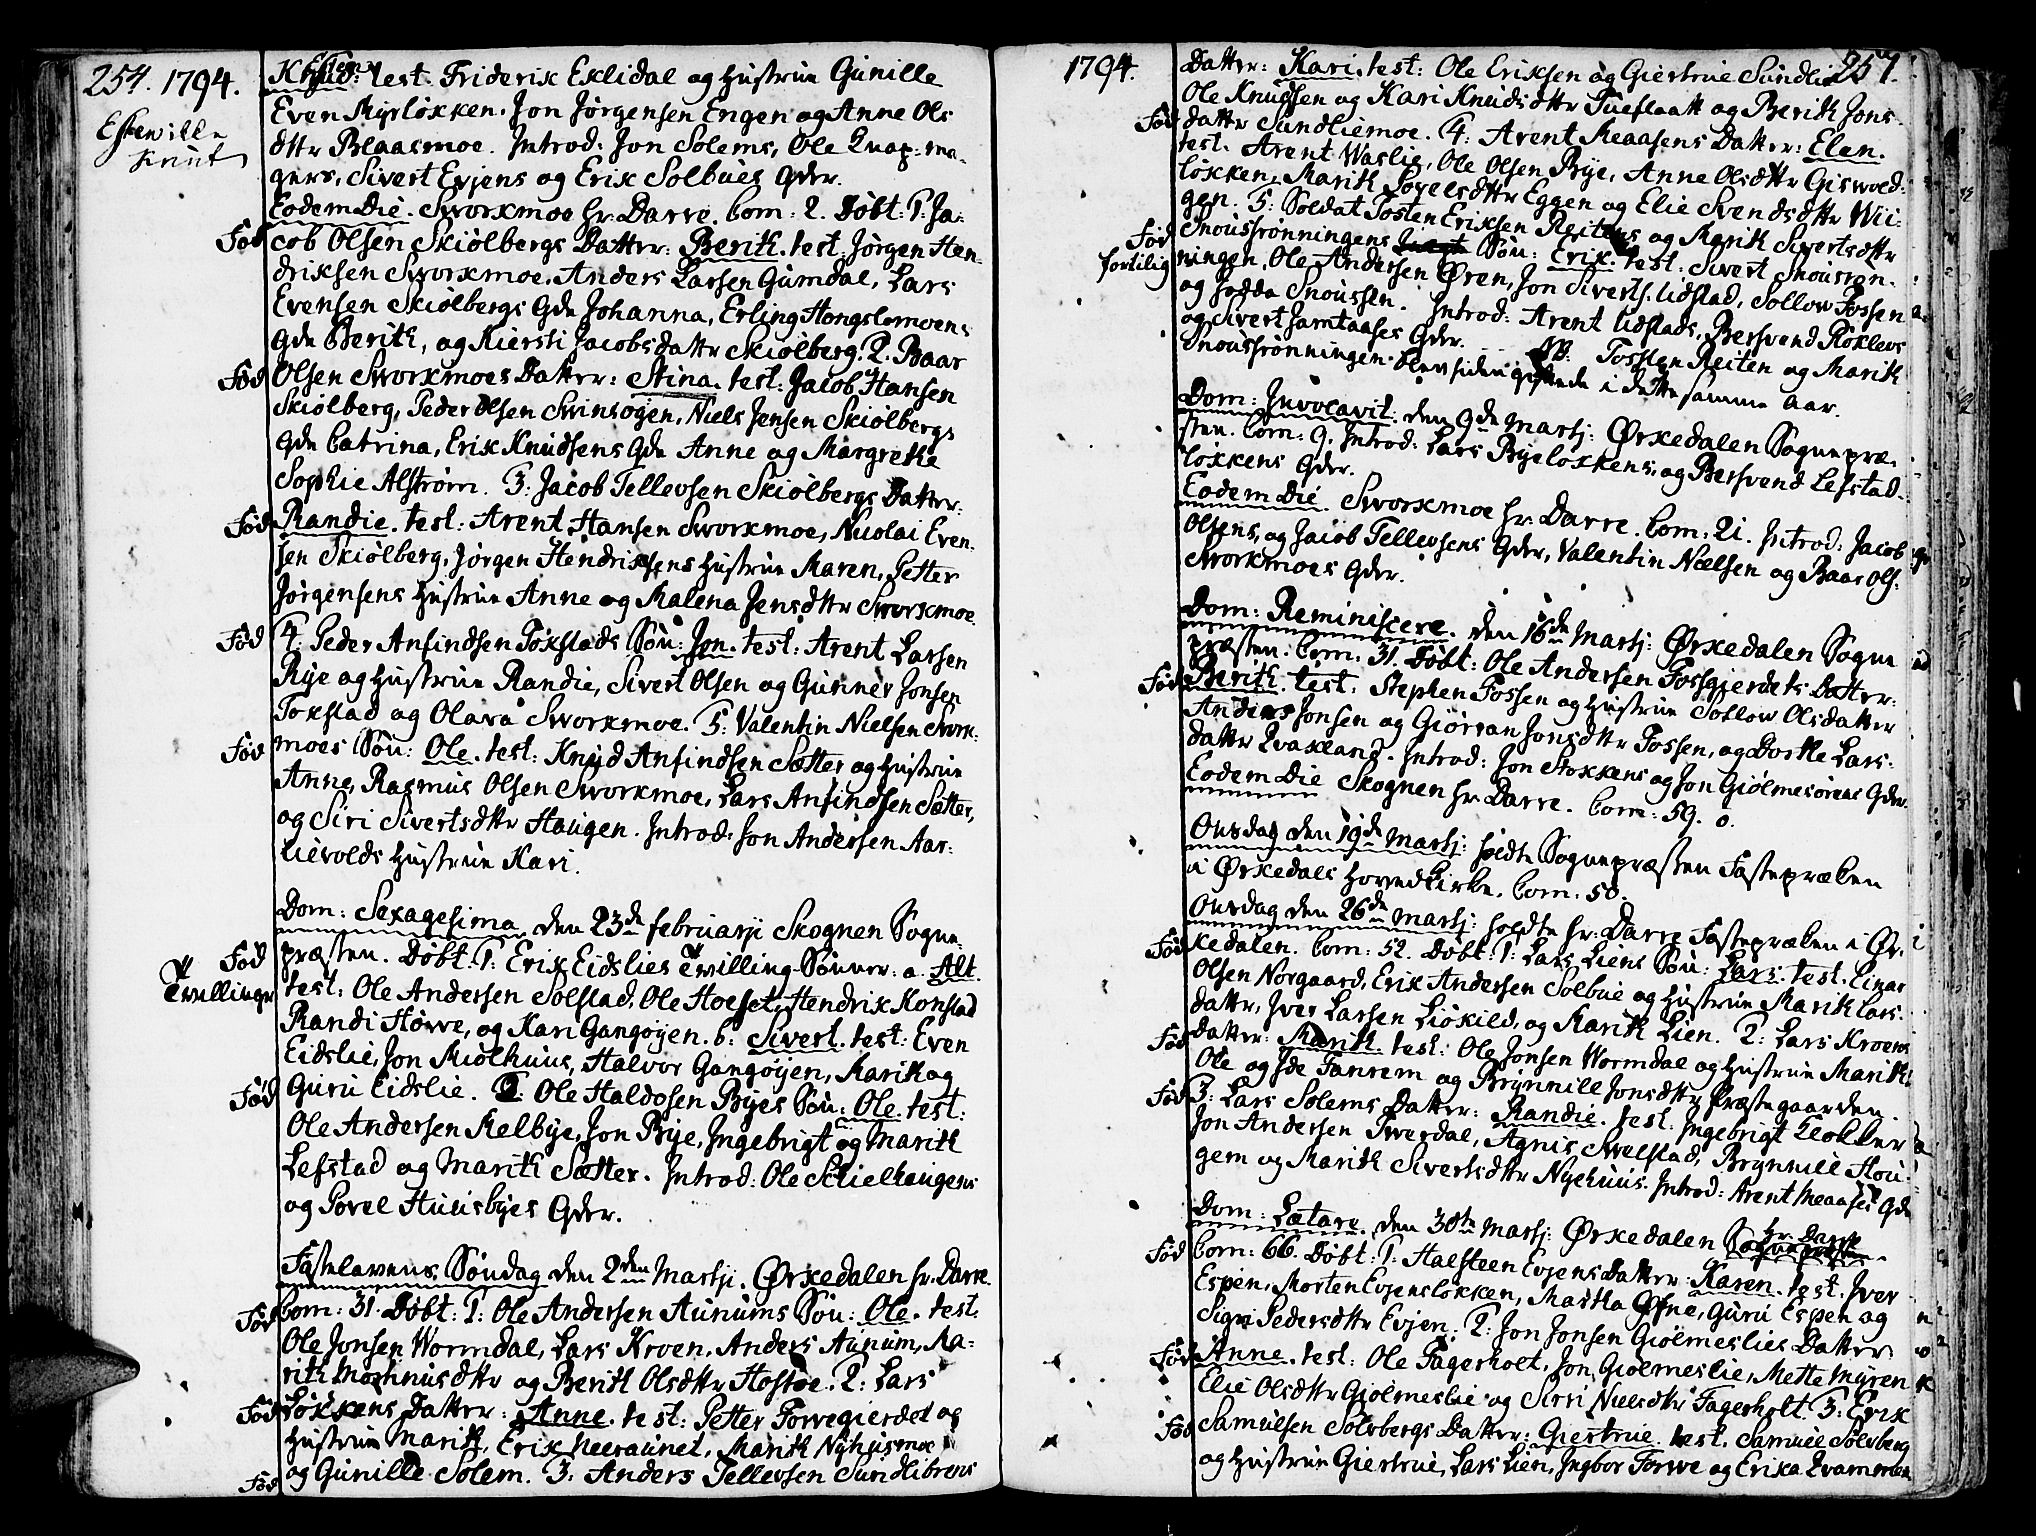 254. 1794.
Knud: test. Friderix Exlidal og Hustrue Gunille
Even Myrløkken, Jon Jørgensen Engen og Anne Ols
dttr Blaasmoe. Introd: Jon Solems, Ole Knap-ma-
gers, Sivert Evjens og Erik Solbues Qder.
Eodem Die. Sworkmoe Hr. Darre. Com: 2. Døbt: 1: Ja-
Fød cob Olsen Skiølbergs Datter: Berith. test. Jørgen Hen-
driksen Sworkmoe, Anders Larsen Gumdal, Lars
Evensen Skiølbergs Qde Johanna, Erling Hongslomoens
Qde Berith, og Kiersti Jacobsdattr Skiølberg. 2. Baar
Fød Olsen Sworkmoes Datter: Stina. test: Jacob Hansen
Skiølberg, Peder Olsen Swinsøgen, Niels Jensen Skiølbergs
Qde Catrina, Erik Knudsens Qde Anne og Margrethe
Sophie Alstrøm. 3: Jacob Tellevsen Skiølbergs Datter:
Fød Randie. test: Arent Hansen Sworkmoe, Nicolai Even-
sen Skiølberg, Jørgen Hendriksens Hustrue Maren, Petter
Jørgensens Hustrue Anne og Malena Jensdttr Sworkmoe.
Fød 4: Peder Anfindsen Toxstads Søn: Jon. test: Arent Larsen
Rye og Hustrue Randie, Sivert Olsen og Gunner Jonsen
Toxstad og Olava Sworkmoe. 5: Valentin Nielsen Swork-
Fød moes Søn: Ole. test: Knud Anfindsen Sætter og Hustrue
Anne, Rasmus Olsen Sworkmoe, Lars Anfindsen Sætter,
og Siri Sivertsdttr Haugen. Introd: Jon Andersen Aar-
lievolds Hustrue Kari.
Dom: Sexagesima den 23de Februarij Skognen Sogne-
Fød præsten. Døbt: 1: Erik Eidslies Twilling-Sønner: a. Alt.
Twillinger test: Ole Andersen Solstad, Ole Hoeset, Hendrik Konstad
Randi Hørve, og Kari Gangøyen. b: Sivert. test: Even
Eidslie, Jon Miølhuus, Halvor Gangøyen, Marit og
Fød Guru Eidslie. 2: Ole Haldosen Byes Søn: Ole. test:
Ole Andersen Kelbye, Jon Bye, Ingebrigt og Marith
Lefstad og Marith Sætter. Introd: Ole Skielhaugens
og Povel Huusbyes Qder.
Fastelavens Søndag den 2den Martij. Ørkedalen Hr. Darre.
Fød Com: 31. Døbt: 1: Ole Andersen Aunums Søn: Ole. test.
Ole Jonsen Wormdal, Lars Kroen, Anders Aunum, Ma-
rith Mechnusdttr og Berith Olsdttr Hostoe. 2: Lars
Fød Løkkens Datter: Anne. test: Petter Forvegierdet og
Hustrue Marith, Erik Neeraunet, Marith Nyhusmoe
Fød og Gunille Solem. 3: Anders Tellevsen Sundlibrens
1794. 257.
Datter: Kari. test: Ole Eriksen og Giertrue Sundlie
Ole Knudsen og Kari Knudsdttr Tueflaatt og Berith Jons-
Fød dattr Sundliemoe. 4: Arent Meaasens Datter: Elen.
test. Arent Waslie, Ole Olsen Bye, Anne Olsdttr Giswold-
løkken, Marith Povelsdttr Eggen og Elie Svendsdttr Wii-
gen. 5: Soldat Tosten Eriksen Reitens og Marith Sivertsdttr
Fød Snousrønningens Søn: Erik. test: Sivert Snousrøn-
fortilig ningen, Ole Andersen Øren, Jon Siverts. Udstad, Sollow Fossen
og Hodda Snoussen. Introd: Arent Udstads, Bersvend Roxlevs
og Sivert Jamtaases Qder. NB. Tosten Reiten og Marith
Snousrønningen blev siden giftede i dette samme Aar.
Dom: Invocavit. den 9de Martij: Ørkedalen Sognepræ-
sten. Com: 9. Introd: Lars Byeløkkens, og Bersvend Lefstad-
løkkens Qder.
Eodem Die. Sworkmoe Hr. Darre. Com: 21. Introd: Jacob
Olsens, og Jacob Tellevsens Qder, Valentin Nielsen og Baar Ols.
Sworkmoes Qder.
Dom: Reminiscere. den 16de Martij: Ørkedalen Sogne
præsten. Com: 31. Døbt: Ole Andersen Fossgierdets Datter:
Fød Berith. test: Stephen Fossen og Hustrue Sollow Olsdatter
Anders Jonsen og Giørran Jonsdttr Fossen, og Dorthe Lars-
dattr Kvakland. Introd: Jon Stokkens og Jon Giølmesørens Qder.
Eodem Die Skognen Hr. Darre. Com: 59. 0.
Onsdag den 19de Martij: holdte Sognepræsten Fasteprækn
i Ørkedals Hovedkirke. Com: 50.
Onsdag den 26de Martij: holdte Hr: Darre Fasteprækn i Ør-
Fød kedalen. Com: 52. Døbt: 1: Lars Liens Søn: Lars. test. Einar
Olsen Norgaard, Erik Andersen Solbue og Hustrue Marith Lars-
dattr, Iver Larsen Liøkild, og Marith Lien. 2: Lars Kroens
Fød datter: Marith. test: Ole Jonsen Wormdal og Hustrue Marith
Ole og Ide Fanrem og Brynnill Jonsdttr Præstegaarden.
Fød 3: Lars Solems Datter: Randie. test. Ingebrigt Klokker
Jon Andersen Twerdal, Agnis Swelstad, Brynnill Hou-
gem og Marith Sivertsdttr Nyehuus. Introd: Arent Meaases Qde
Dom: Lætare. den 30te Martij: Ørkedalen Hr: Darre
Fød Com: 66. Døbt: 1: Halsteen Evjens Datter: Karen. test. Iver
Espen, Morten Evjensløkken, Martha Øfne, Guru Espen og
Sigri Pedersdttr Evjen. 2: Jon Jonsen Giølmeslies Datter:
Fød Anne. test: Ole Fagerholt, Jon Giølmeslie, Mette Myren
Elie Olsdttr Giølmeslie og Sirri Nielsdttr Fagerholt. 3: Erik
Fød Samuelsen Sølvbergs Datter: Giertrue. test. Samuel Sølvberg
og Hustrue Giertrue, Lars Lien, Ingbor Forwe og Erika Evamoen